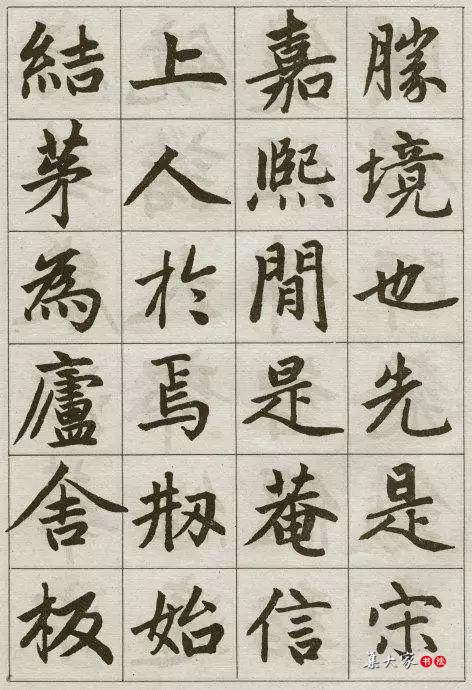 勝境也先是宋
嘉熙閒是菴信
上人於焉剏始
結茅為廬舍板
集大家书法